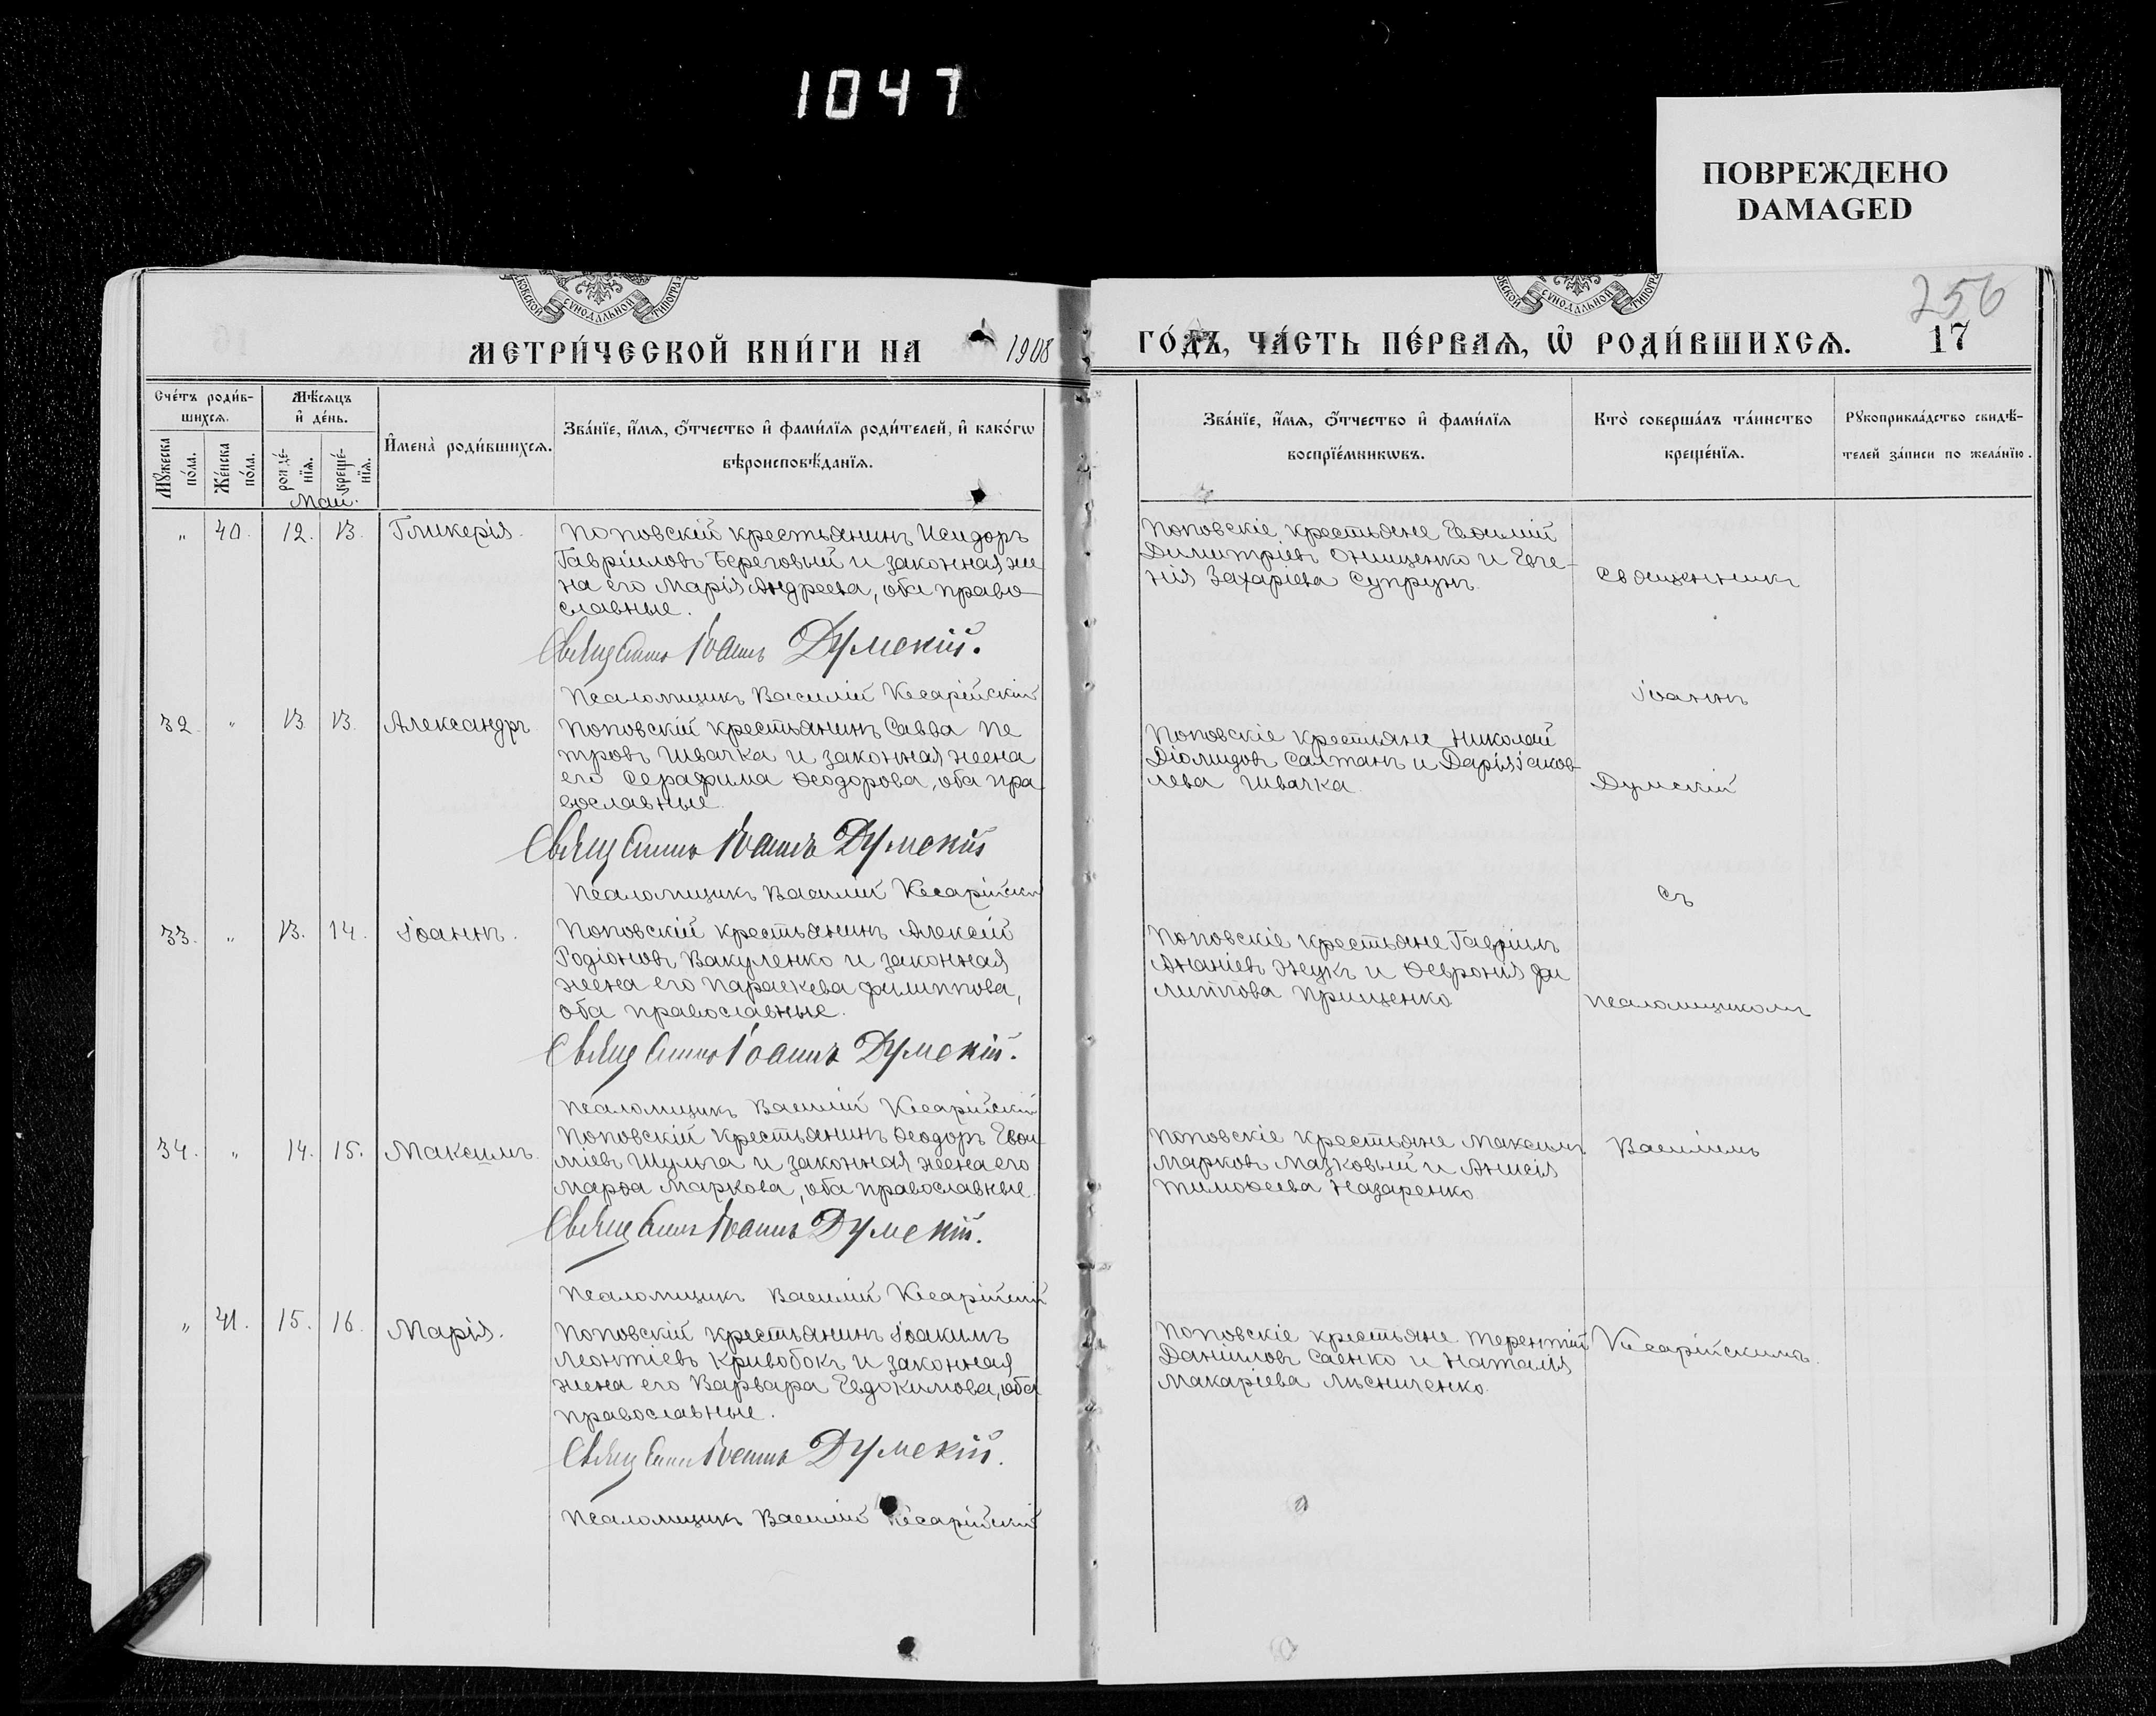 1047
ПОВРЕЖДЕНО
DAMAGED
СѴНОДАЛЬНОЙ
СѴНОДАЛЬНОЙ
256
МЕТРИ́ЧЕСКОЙ КНИ́ГИ НА 1908
ГО́ДЪ, ЧА́СТЬ ПЕ́РВАЯ, Ѡ҆ РОДИ́ВШИХСЯ. 17
Сче́тъ роди́в-
шихся.
Мѣ́сяцъ
и҆ де́нь.
Мꙋ́жеска
по́ла.
Же́нска
по́ла.
рожде́-
нїя.
креще́-
нїя.
И҆мена̀ роди́вшихся.
Зва́нїе, и҆́мя, ѻ҆́тчество и҆ фами́лїя роди́телей, и҆ како́гѡ
вѣроисповѣ́данїя.
Зва́нїе, и҆́мя, ѻ҆́тчество и҆ фами́лїя
воспрїе́мникѡвъ.
Кто̀ соверша́лъ та́инство
креще́нїя.
Рꙋкоприкла́дство свидѣ́-
телей за́писи по жела́нїю.
Май.
„ 40. 12. 13. Гликерія.
Поповскій крестьянинъ Исидоръ
Гавріиловъ Береговый и законная же
на его Марія Андреева, оба право-
славные.
Священникъ Іоаннъ Думскій.
Псаломщикъ Василій Кесарійскій
Поповскіе крестьяне Евѳимій
Димитріевъ Онищенко и Евге-
нія Захаріева Супрунъ.
Священникъ
Іоаннъ
32. „ 13. 13. Александръ.
Поповскій крестьянинъ Савва Пе
тровъ Швачка и законная жена
его Серафима Ѳеодорова, оба пра
вославные.
Священникъ Іоаннъ Думскій
Псаломщикъ Василій Кесарійскій
Поповскіе крестьяне Николай
Діомидовъ Салтанъ и Дарія Іаков-
лева Швачка.
Думскій
съ
33. „ 13. 14. Іоаннъ.
Поповскій крестьянинъ Алексій
Родіоновъ Вакуленко и законная
жена его Параскева Филиппова,
оба православные.
Священникъ Іоаннъ Думскій.
Псаломщикъ Василій Кесарійскій
Поповскіе крестьяне Гавріилъ
Ананіевъ Жукъ и Ѳевронія Фи
липпова Прищенко
псаломщикомъ
34. „ 14. 15. Максимъ.
Поповскій крестьянинъ Ѳеодоръ Евѳи-
міевъ Шульга и законная жена его
Марѳа Маркова, оба православные.
Священникъ Іоаннъ Думскій.
Псаломщикъ Василій Кесарійскій
Поповскіе крестьяне Максимъ
Марковъ Мазковый и Анисія
Тимоѳеева Назаренко
Василіемъ
„ 41. 15. 16. Марія.
Поповскій крестьянинъ Іоакимъ
Леонтіевъ Кривобокъ и законная
жена его Варвара Евдокимова, оба
православные.
Священникъ Іоаннъ Думскій.
Псаломщикъ Василій Кесарійскій
Поповскіе крестьяне Терентій
Даніиловъ Саенко и Наталія
Макаріева Лѣсниченко.
Кесарійскимъ.